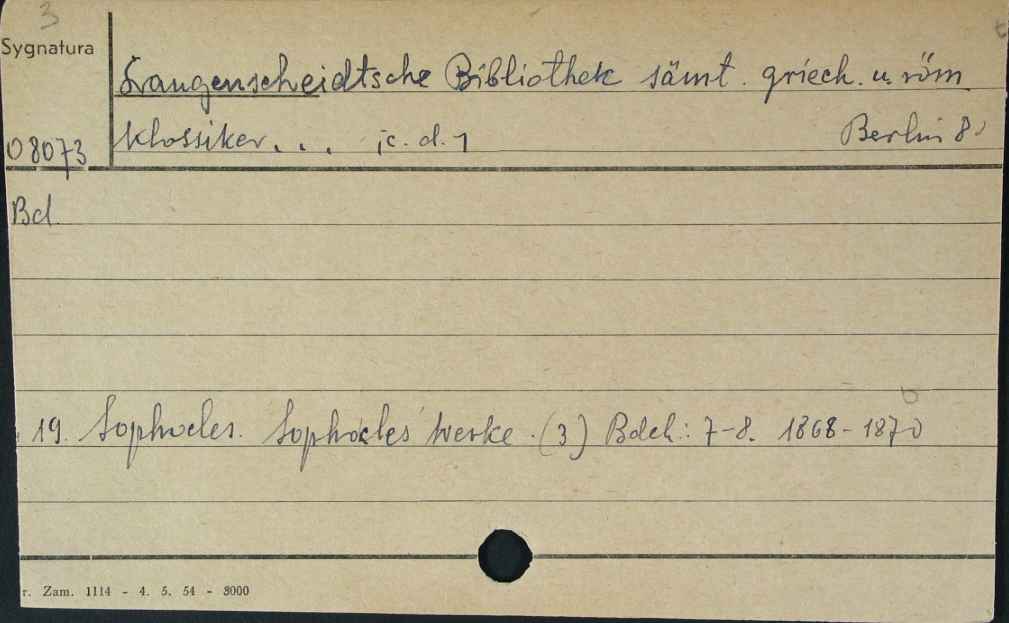 3
Sygnatura
Langenscheidtsche Bibliothek sämt. griech. u. röm.
08073 Klassiker... /c.d./ Berlin 8°
Bd.
19. Sophocles. Sophocles' Werke. (3) Bdch: 7-8. 1868-1870
r. Zam. 1114 - 4. 5. 54 - 8000